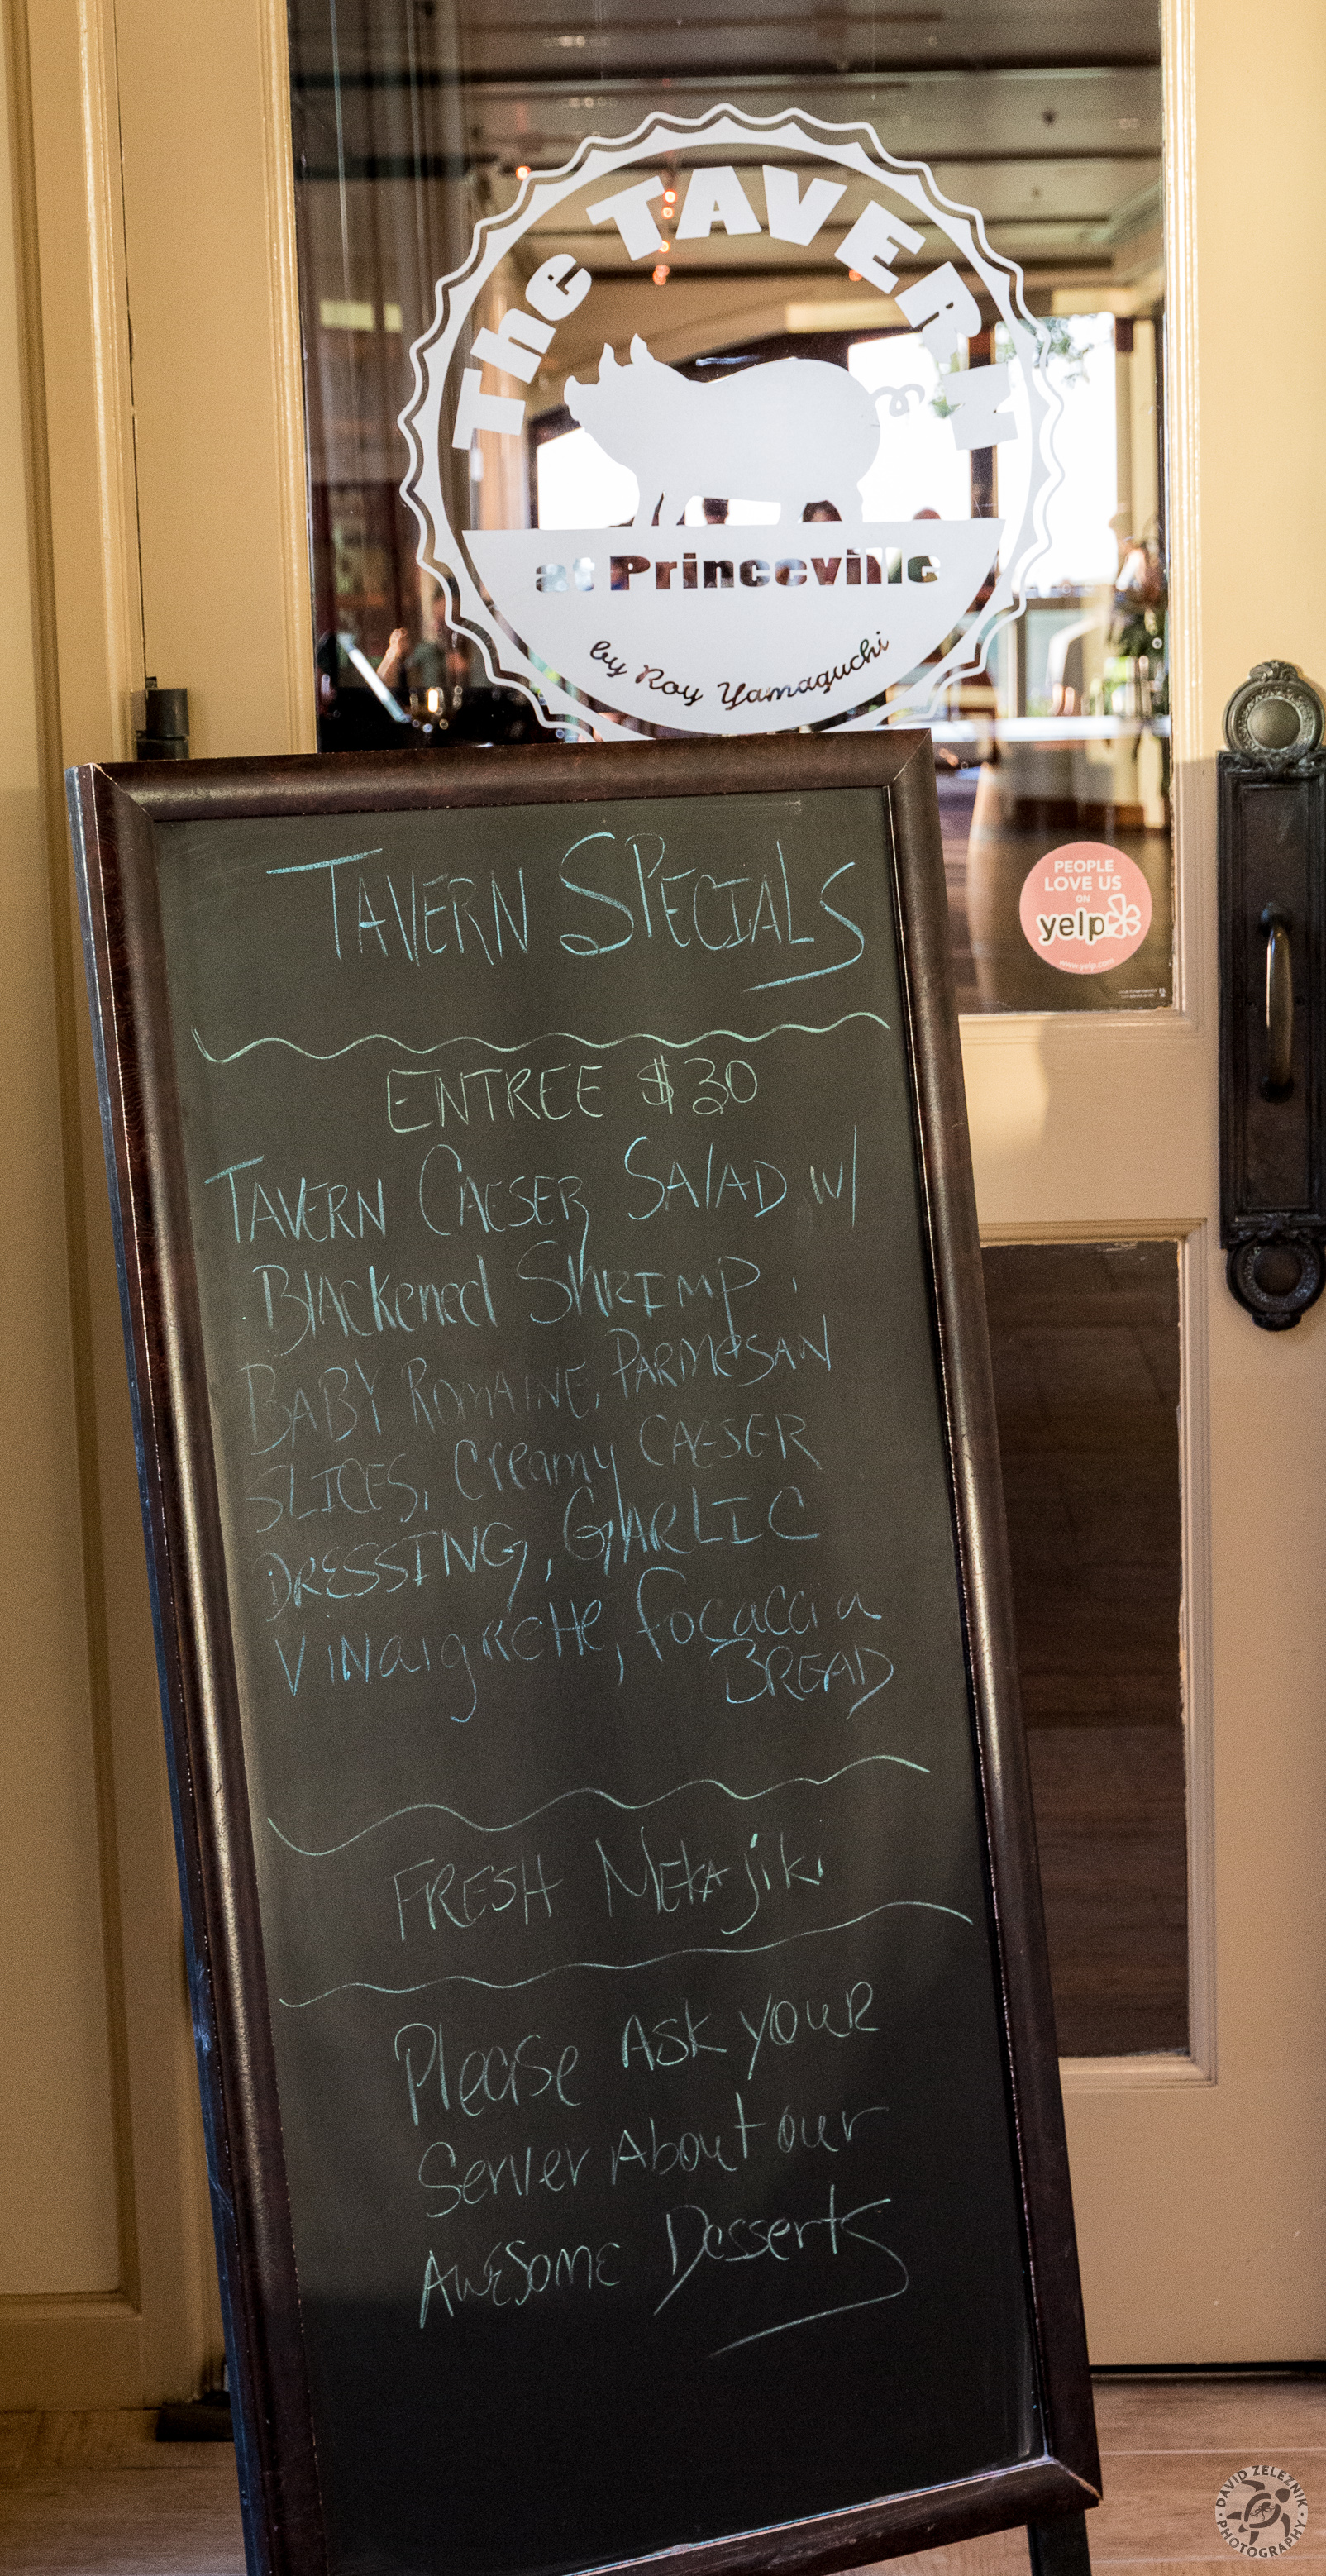 The TAVERN
at Princeville
by Roy Yamaguchi
PEOPLE
LOVE US
ON
yelp
www.yelp.com
TAVERN SPECIALS
ENTREE $30
TAVERN CAESER SALAD W/
BLACKENED SHRIMP,
BABY ROMAINE, PARMESAN
SLICES, Creamy CAESER
DRESSING, GARLIC
VINAIGRETTE, focaccia
BREAD
FRESH MEKAJIKI
Please ASK YOUR
Server About our
AWESOME Desserts
DAVID ZELEZNIK
PHOTOGRAPHY